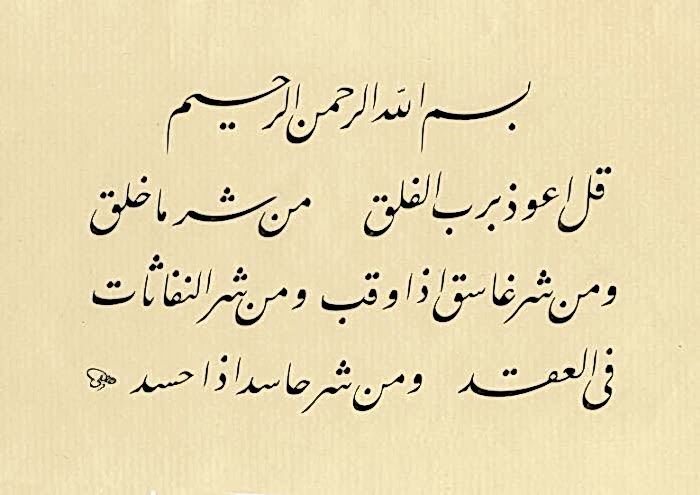 بسم الله الرحمن الرحیم
قل اعوذ برب الفلق من شر ما خلق
ومن شر غاسق اذا وقب ومن شر النفاثات
فی العقد ومن شر حاسد اذا حسد